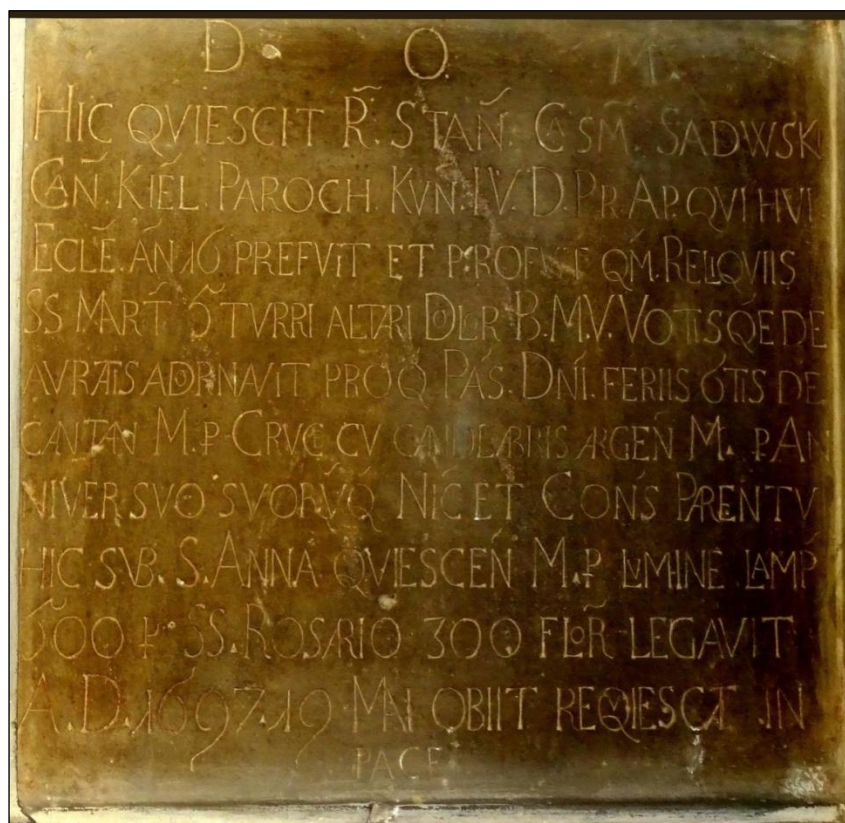 D. O. M.
HIC QVIESCIT R̃. STAÑ. CASM̃. SADWSKI
CAÑ. KIEL̃. PAROCH. KVN. I.V.D. PR. AP. QVI HVI
ECLẼ. AÑ. 16 PREFVIT ET PROFVIT QM̃. RELIQVIIS
SS MART̃ TVRRI ALTARI DOLOR B.M.V. VOTIS QE DE
AVRATIS ADORNAVIT PROQ̃ PAS. DNI. FERIIS 6TIS DE
CANTAN M. P CRVCE CV CANDELABRIS ARGEN̄ M. P AN
NIVER SVO SVORV̄Q̃ NIC ET CONS PARENTV
HIC SVB. S. ANNA QVIESCEN̄ M. P LUMINE LAMP
P SS. ROSARIO 300 FLOR̃ LEGAVIT
A.D. 1697. 19 MAI OBIIT REQVIESCAT IN
PACE